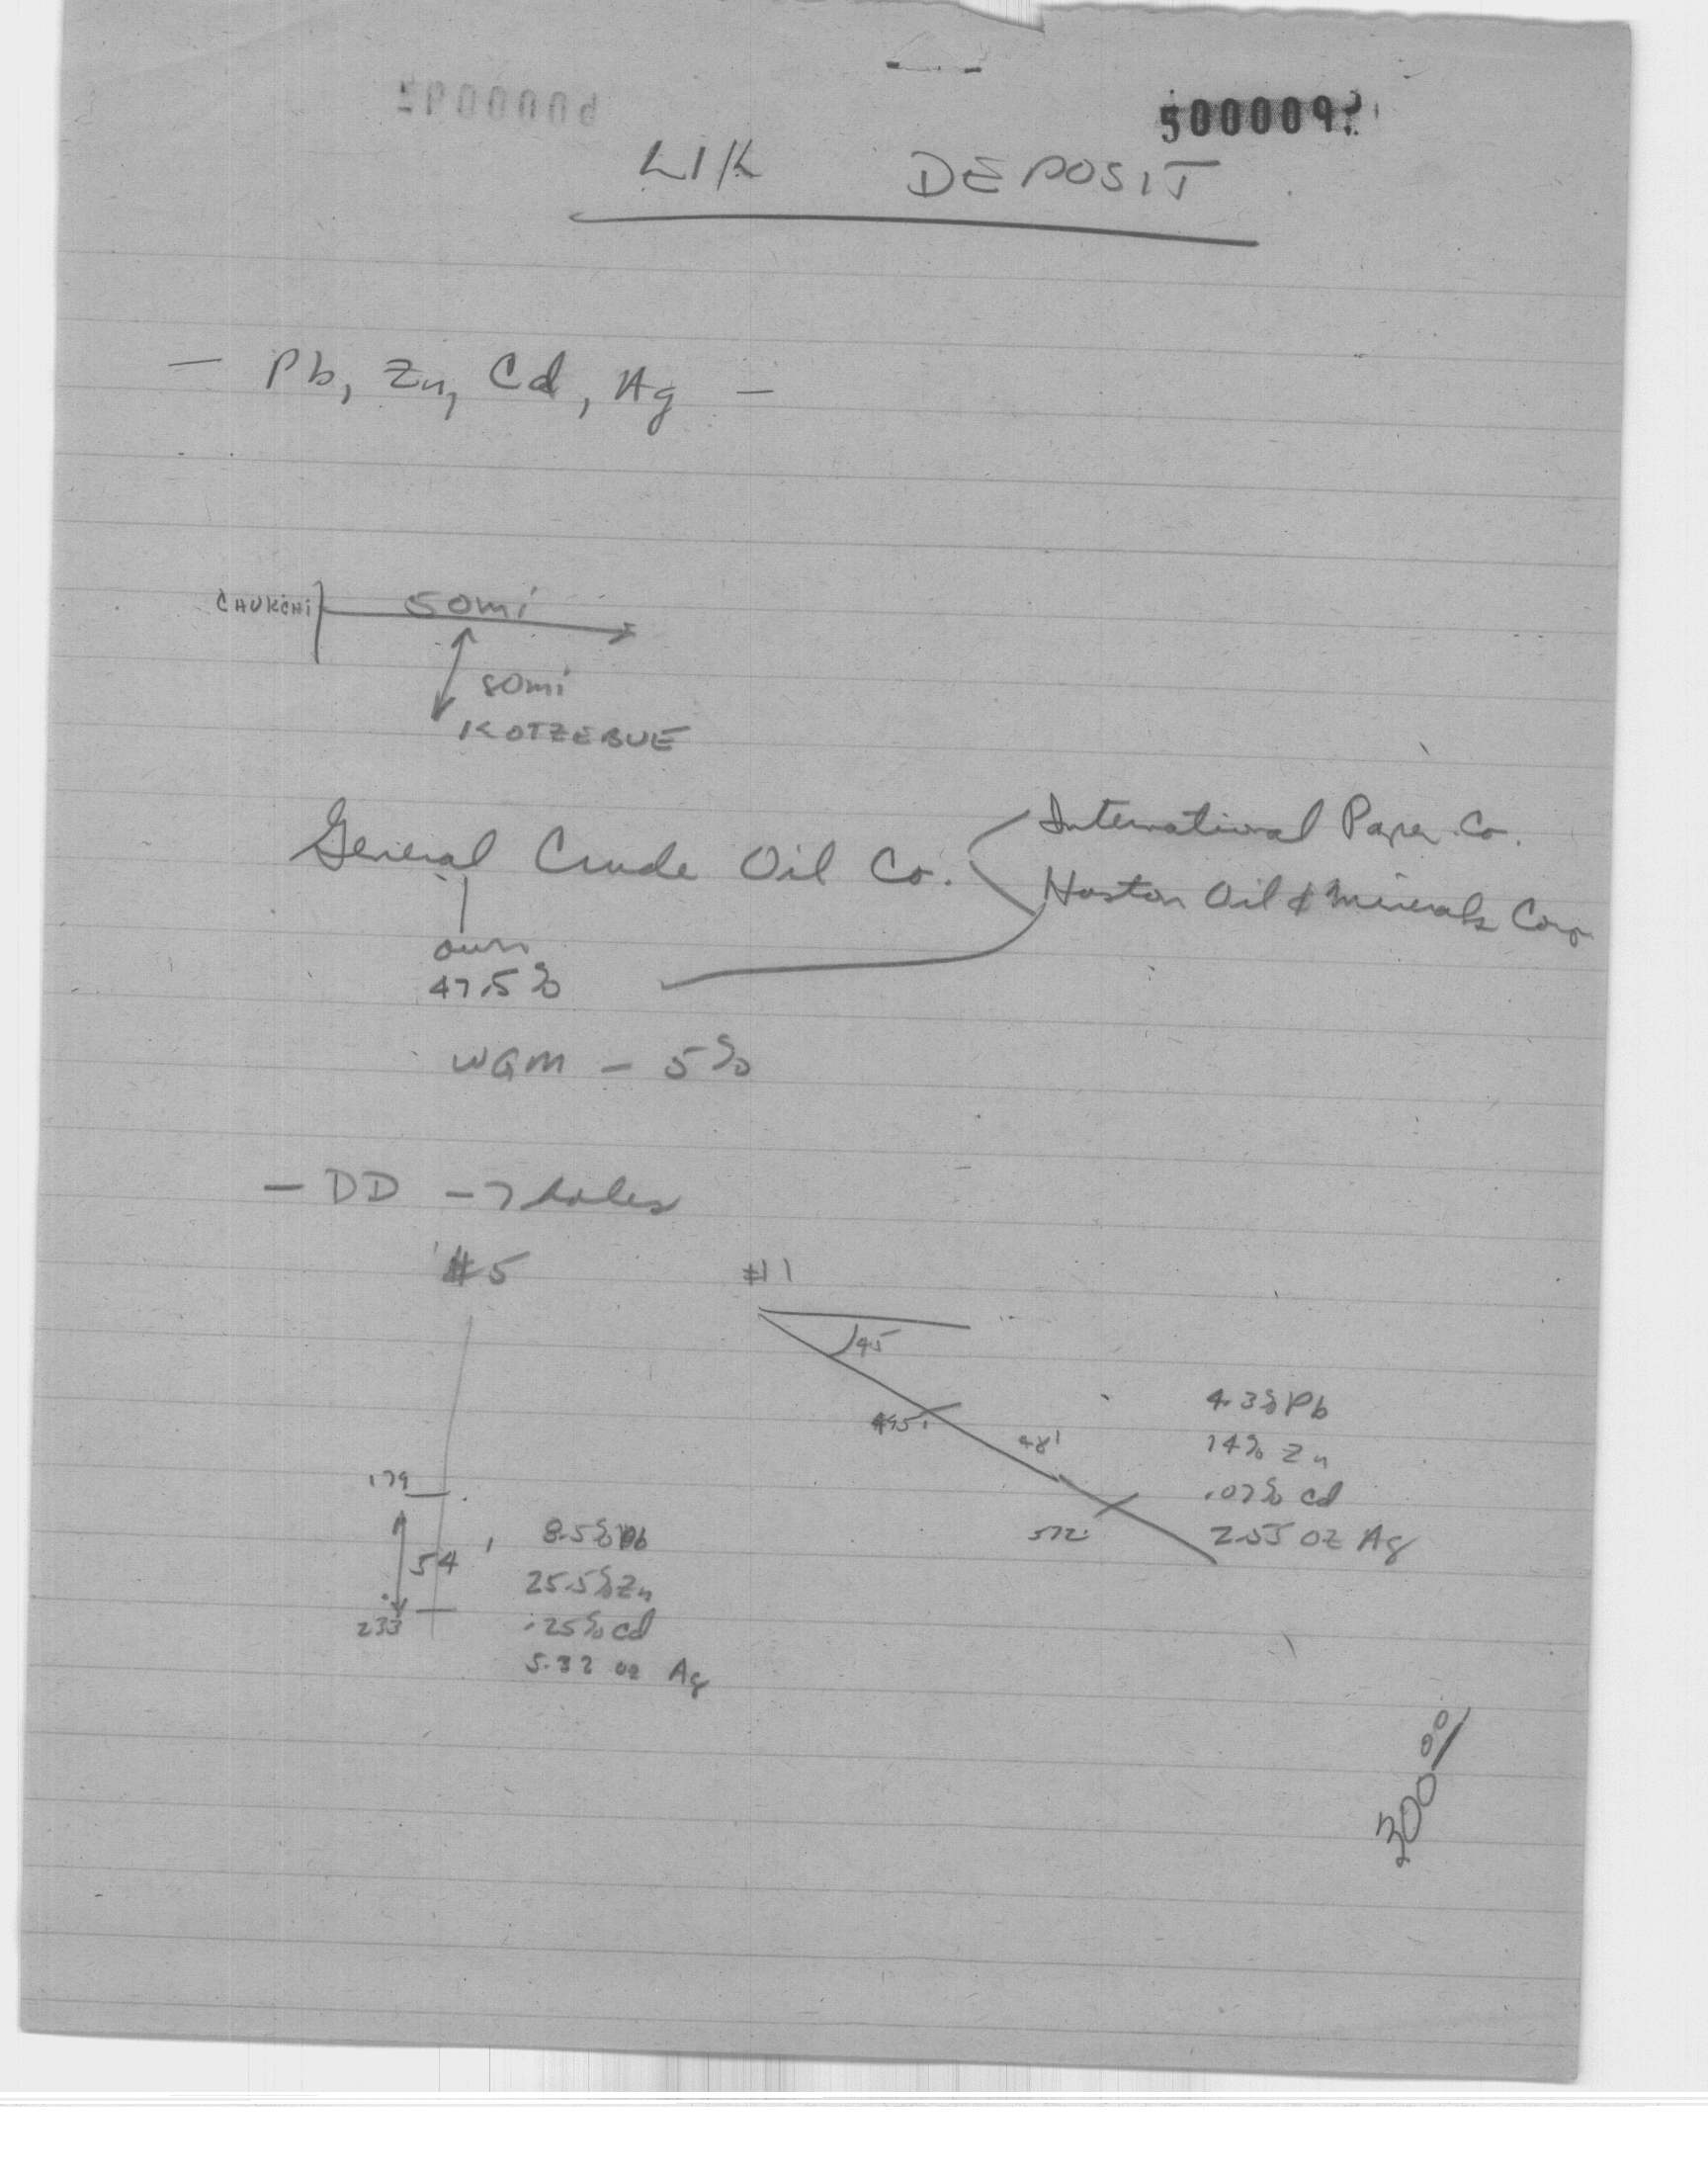 LIK DEPOSIT
— Pb, Zn, Cd, Ag —
CHUKCHI 50mi
80mi
KOTZEBUE
General Crude Oil Co. International Paper Co.
Huston Oil & Minerals Corp
own
47.5%
WGM — 5%
— DD — 7 holes
#5 #11
45
4.3% Pb
14% Zn
.07% Cd
2.55 oz Ag
179
54'
233
8.5% Pb
25.5% Zn
.25% Cd
5.32 oz Ag
300 00